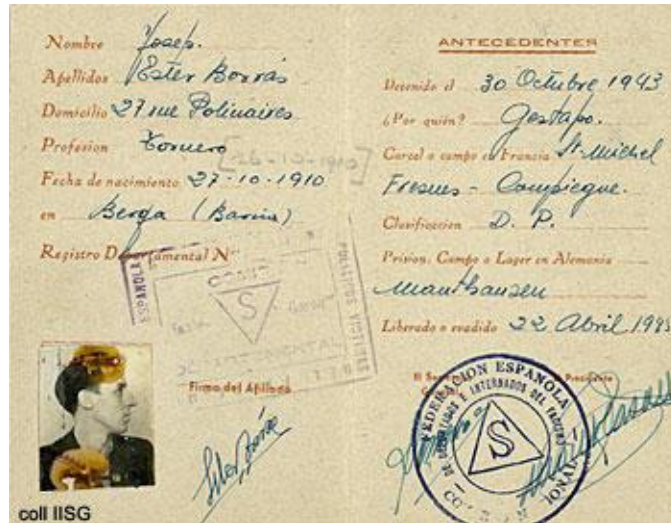 Nombre Josep.
Apellidos Ester Borrás
Domicilio 27 rue Polinaires
Profesion Tornero
[26-10-1910]
Fecha de nacimiento 27-10-1910
en Berga (Barna)
Registro Departamental N°
ESPAÑOLA
POLITICOS VICTIMES
S
Firma del Afiliado
Ester Borrás
coll IISG
ANTECEDENTES
Detenido el 30 Octubre 1943
¿Por quién? Gestapo.
Carcel o campo en Francia St. Michel
Fresnes - Compiegne.
Clasificacion D. P.
Prision, Campo o Lager en Alemania
Mauthausen
Liberado o evadido 22 Abril 1945
Presidente
FEDERACION ESPAÑOLA
DE DEPORTADOS E INTERNADOS DEL FASCISMO
S